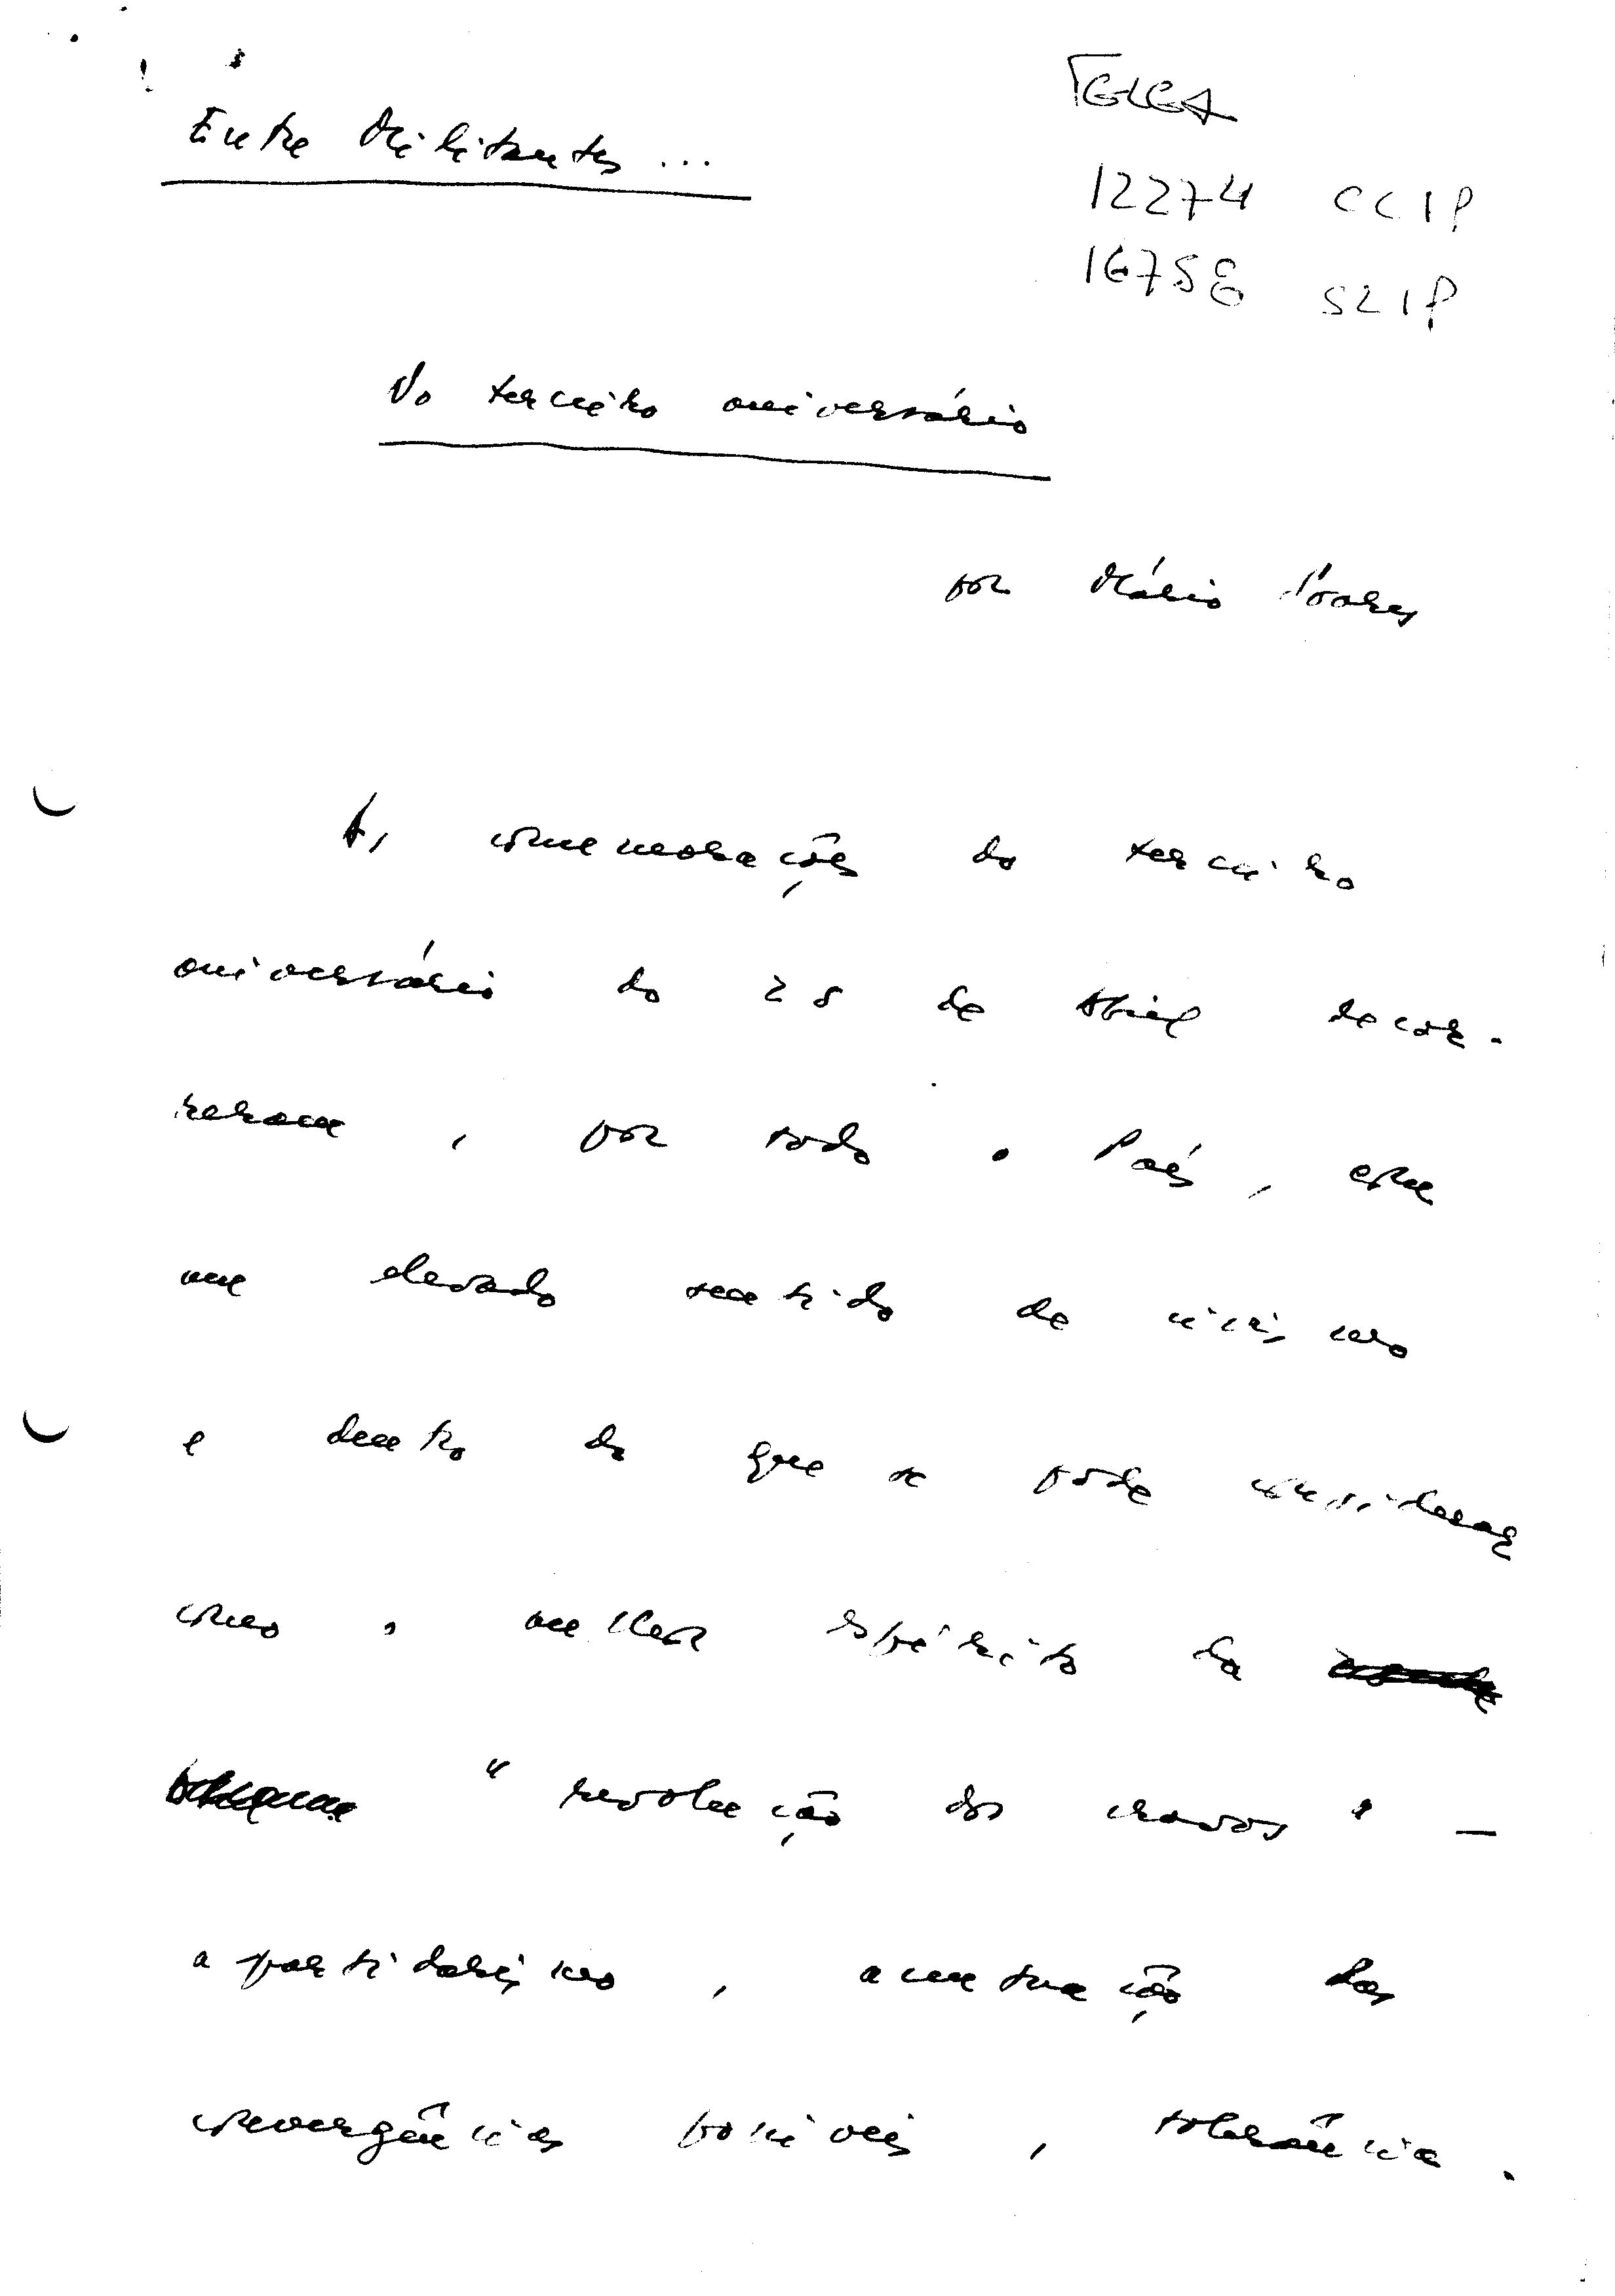 Entre Militantes...
TELEX
12274 CCIP
16758 SZIP
No terceiro aniversário
por Mário Soares
As comemorações do terceiro
aniversário do 25 de Abril decor-
reram, por todo o País, com
um elevado sentido de civismo
e dentro do que se pode considerar
como o melhor espírito da
"revolução dos cravos" —
apartidarismo, acentuação das
convergências possíveis, tolerância.